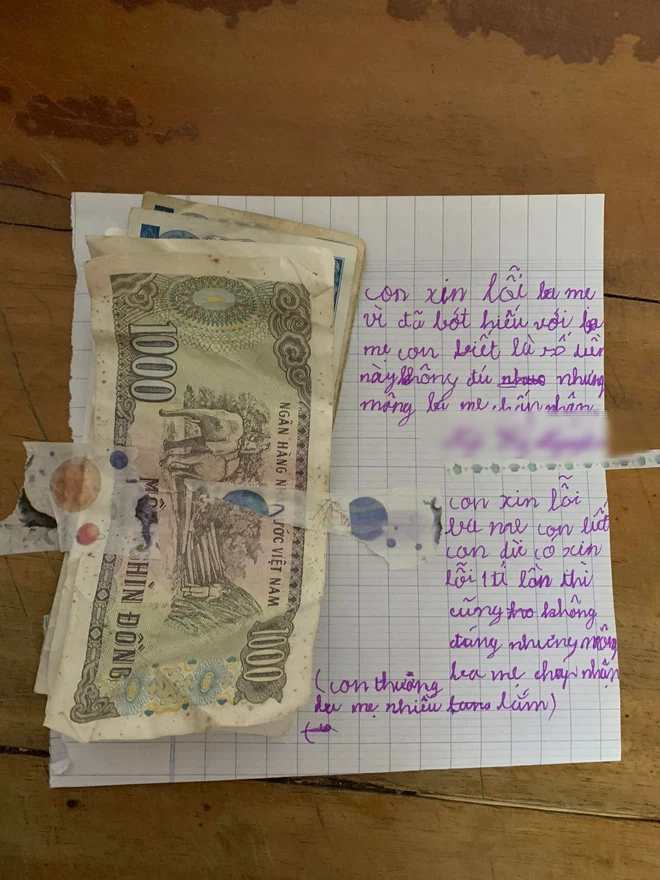 1000
NGÂN HÀNG NHÀ NƯỚC VIỆT NAM
MỘT NGHÌN ĐỒNG
1000
con xin lỗi ba mẹ
vì đã bớt hiếu với ba
mẹ con biết là số tiền
này không đủ nhưng
mông ba mẹ chấp nhận
con xin lỗi
ba mẹ con biết
con dù có xin
lỗi 1 tỉ lần thì
cũng không
đáng nhưng mông
ba mẹ chấp nhận
(con thương
ba mẹ nhiều lắm)